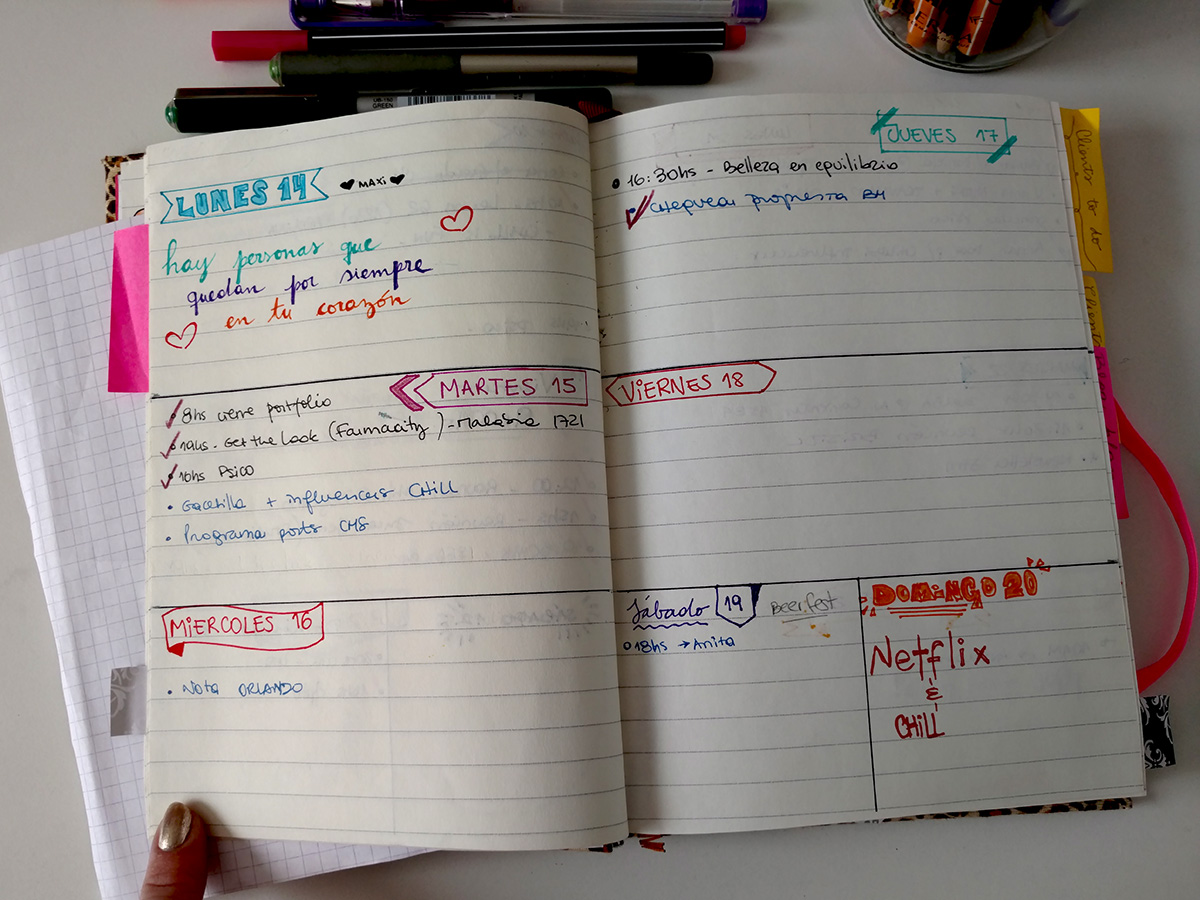 LUNES 14
MAXi
hay personas que
quedan por siempre
en tu corazón
MARTES 15
8hs cierre portfolio
14hs - Get the Look (Farmacity) - Malabia 1721
16hs Psico
Gacetilla + influencers CHILL
Programa posts CMS
MiERCOLES 16
Nota ORLANDO
JUEVES 17
16:30hs - Belleza en equilibrio
CHequear propuesta BH
ViERNES 18
Sábado 19
Beerfest
18hs → Anita
DOMiNGO 20
Netflix
&
CHiLL
GREEN
to do